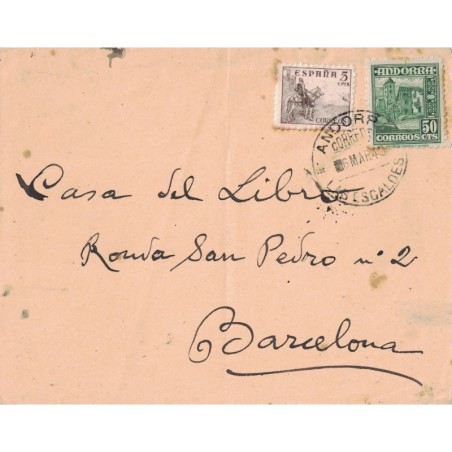 ESPAÑA 5
CTS
CORREOS
ANDORRA
CORREOS 50 CTS
ANDORRA
CORREOS
MAR
LES ESCALDES
Casa del Libro
Ronda San Pedro nº 2
Barcelona